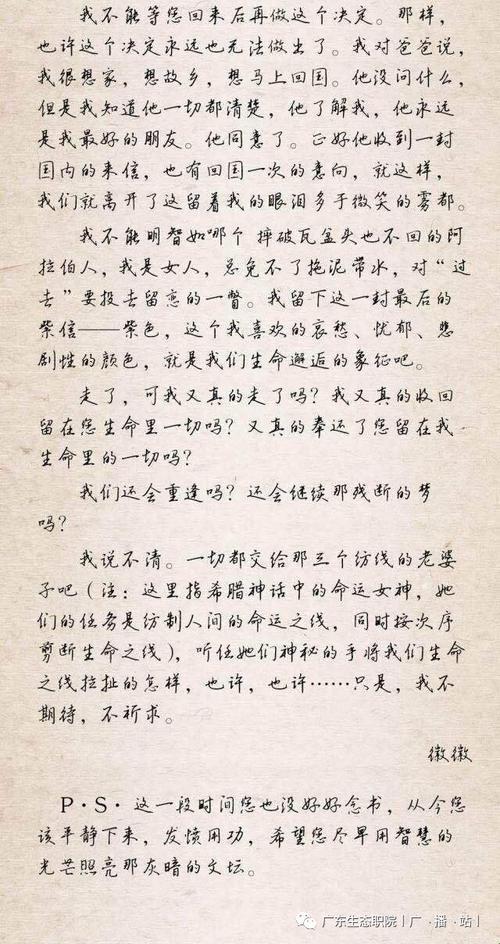 我不能等您回来后再做这个决定。那样，
也许这个决定永远也无法做出了。我对爸爸说，
我很想家，想故乡，想马上回国。他没问什么，
但是我知道他一切都清楚，他了解我，他永远
是我最好的朋友。他同意了。正好他收到一封
国内的来信，也有回国一次的意向，就这样，
我们就离开了这留着我的眼泪多于微笑的雾都。
我不能明智如哪个 摔破瓦盆头也不回的阿
拉伯人，我是女人，总免不了拖泥带水，对“过
去”要投去留恋的一瞥。我留下这一封最后的
紫信——紫色，这个我喜欢的哀愁、忧郁、悲
剧性的颜色，就是我们生命邂逅的象征吧。
走了，可我又真的走了吗？我又真的收回
留在您生命里一切吗？又真的奉还了您留在我
生命里的一切吗？
我们还会重逢吗？还会继续那残断的梦
吗？
我说不清。一切都交给那三个纺线的老婆
子吧（注：这里指希腊神话中的命运女神，她
们的任务是纺制人间的命运之线，同时按次序
剪断生命之线），听任她们神秘的手将我们生命
之线拉扯的怎样，也许，也许……只是，我不
期待，不祈求。
徽徽
P·S·这一段时间您也没好好念书，从今您
该平静下来，发愤用功，希望您尽早用智慧的
光芒照亮那灰暗的文坛。
广东生态职院丨广·播·站丨